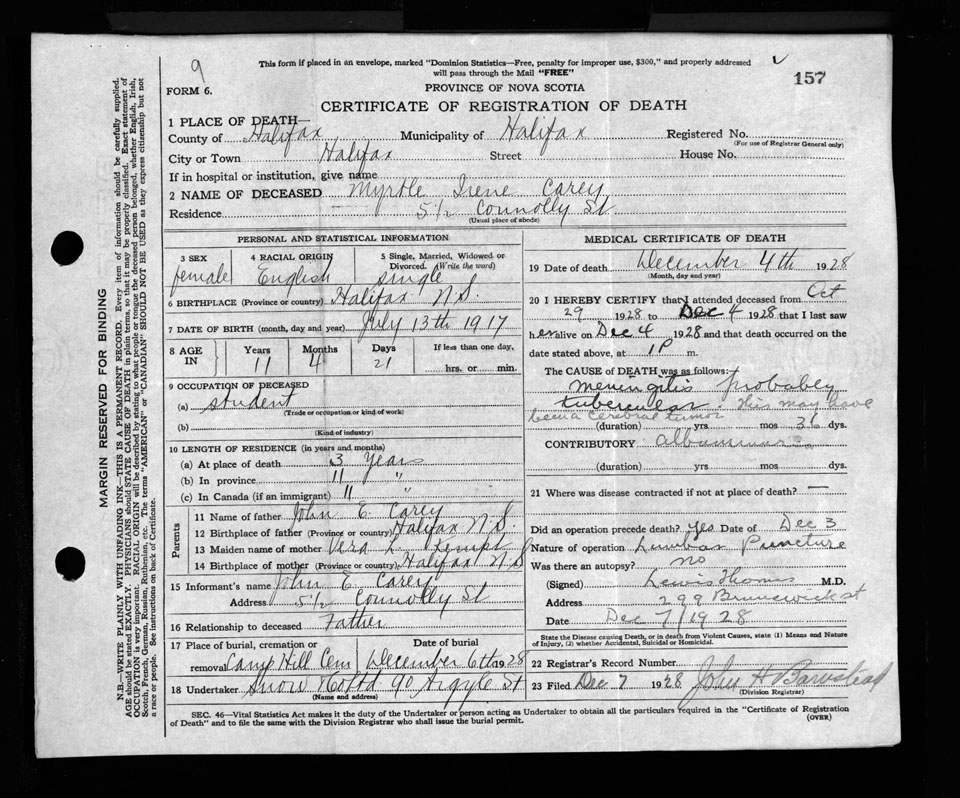 9
This form if placed in an envelope, marked "Dominion Statistics—Free, penalty for improper use, $300," and properly addressed
will pass through the Mail "FREE"
157
FORM 6.
PROVINCE OF NOVA SCOTIA
CERTIFICATE OF REGISTRATION OF DEATH
1 PLACE OF DEATH—
County of Halifax Municipality of Halifax Registered No.
(For use of Registrar General only)
City or Town Halifax Street House No.
If in hospital or institution, give name
2 NAME OF DECEASED Myrtle Irene Carey
Residence 5 1/2 Connolly St
(Usual place of abode)
PERSONAL AND STATISTICAL INFORMATION
3 SEX female
4 RACIAL ORIGIN English
5 Single, Married, Widowed or Divorced. (Write the word) single
6 BIRTHPLACE (Province or country) Halifax N.S.
7 DATE OF BIRTH (month, day and year) July 13th 1917
8 AGE IN Years 11 Months 4 Days 21 If less than one day, hrs. or min.
9 OCCUPATION OF DECEASED
(a) student
(Trade or occupation or kind of work)
(b)
(Kind of industry)
10 LENGTH OF RESIDENCE (in years and months)
(a) At place of death 3 Years
(b) In province 11 "
(c) In Canada (if an immigrant) 11 "
Parents
11 Name of father John E. Carey
12 Birthplace of father (Province or country) Halifax N.S.
13 Maiden name of mother Vera L.
14 Birthplace of mother (Province or country) Halifax N S
15 Informant's name John E. Carey
Address 5 1/2 Connolly St
16 Relationship to deceased Father
17 Place of burial, cremation or removal Camp Hill Cem
Date of burial December 6th 1928
18 Undertaker Snow & Co Ltd 90 Argyle St
(Name and address)
MEDICAL CERTIFICATE OF DEATH
19 Date of death December 4th 1928
(Month, day and year)
20 I HEREBY CERTIFY that I attended deceased from Oct
29 1928 to Dec 4 1928 that I last saw
her alive on Dec 4 1928 and that death occurred on
date stated above, at 1 P m.
The CAUSE OF DEATH was as follows:
meningitis probably
This may have
been a cerebral tumor
(duration) yrs mos 36 dys.
CONTRIBUTORY
(duration) yrs mos dys.
21 Where was disease contracted if not at place of death? —
Did an operation precede death? Yes Date of Dec 3
Nature of operation Lumbar Puncture
Was there an autopsy? no
(Signed) Lewis Thomas M.D.
Address 299 Brunswick st
Date Dec 7/1928
State the Disease causing Death, or in death from Violent Causes, state (1) Means and Nature
of Injury, (2) whether Accidental, Suicidal or Homicidal.
22 Registrar's Record Number
23 Filed Dec 7 1928 John H Barnstead
(Division Registrar)
SEC. 46—Vital Statistics Act makes it the duty of the Undertaker or person acting as Undertaker to obtain all the particulars required in the "Certificate of Registration
of Death" and to file the same with the Division Registrar who shall issue the burial permit.
(OVER)
MARGIN RESERVED FOR BINDING
N.B.—WRITE PLAINLY WITH UNFADING INK—THIS IS A PERMANENT RECORD. Every item of information should be carefully supplied.
AGE should be stated EXACTLY. PHYSICIANS should STATE CAUSE OF DEATH in plain terms, so that it may be properly classified. Exact statement of
OCCUPATION is very important. RACIAL ORIGIN will be described by stating to what people or tongue the deceased person belonged, whether English, Irish,
Scotch, French, German, Russian, Ruthenian, etc. The terms "AMERICAN" or "CANADIAN" SHOULD NOT BE USED as they express citizenship but not
a race or people. See instructions on back of Certificate.